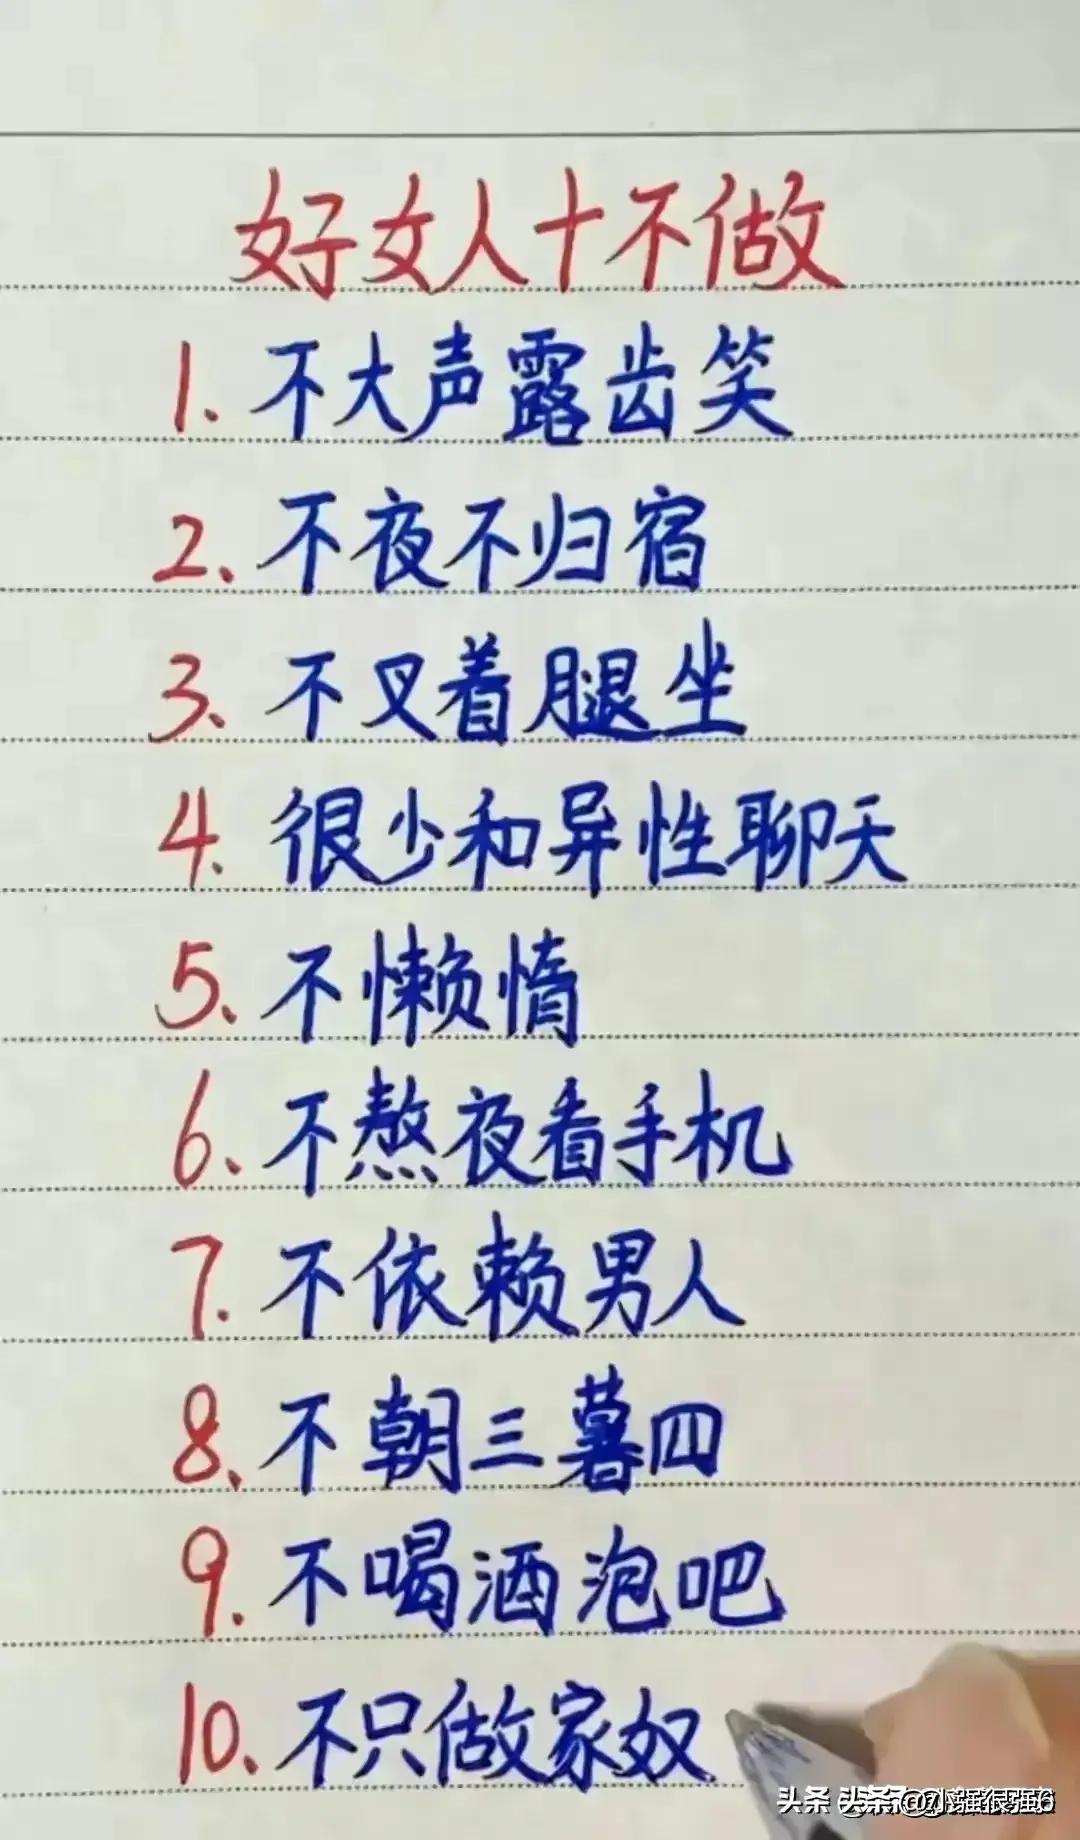 好女人十不做
1.不大声露齿笑
2.不夜不归宿
3.不叉着腿坐
4.很少和异性聊天
5.不懒惰
6.不熬夜看手机
7.不依赖男人
8.不朝三暮四
9.不喝酒泡吧
10.不只做家奴
头条 头条 @小强很强6